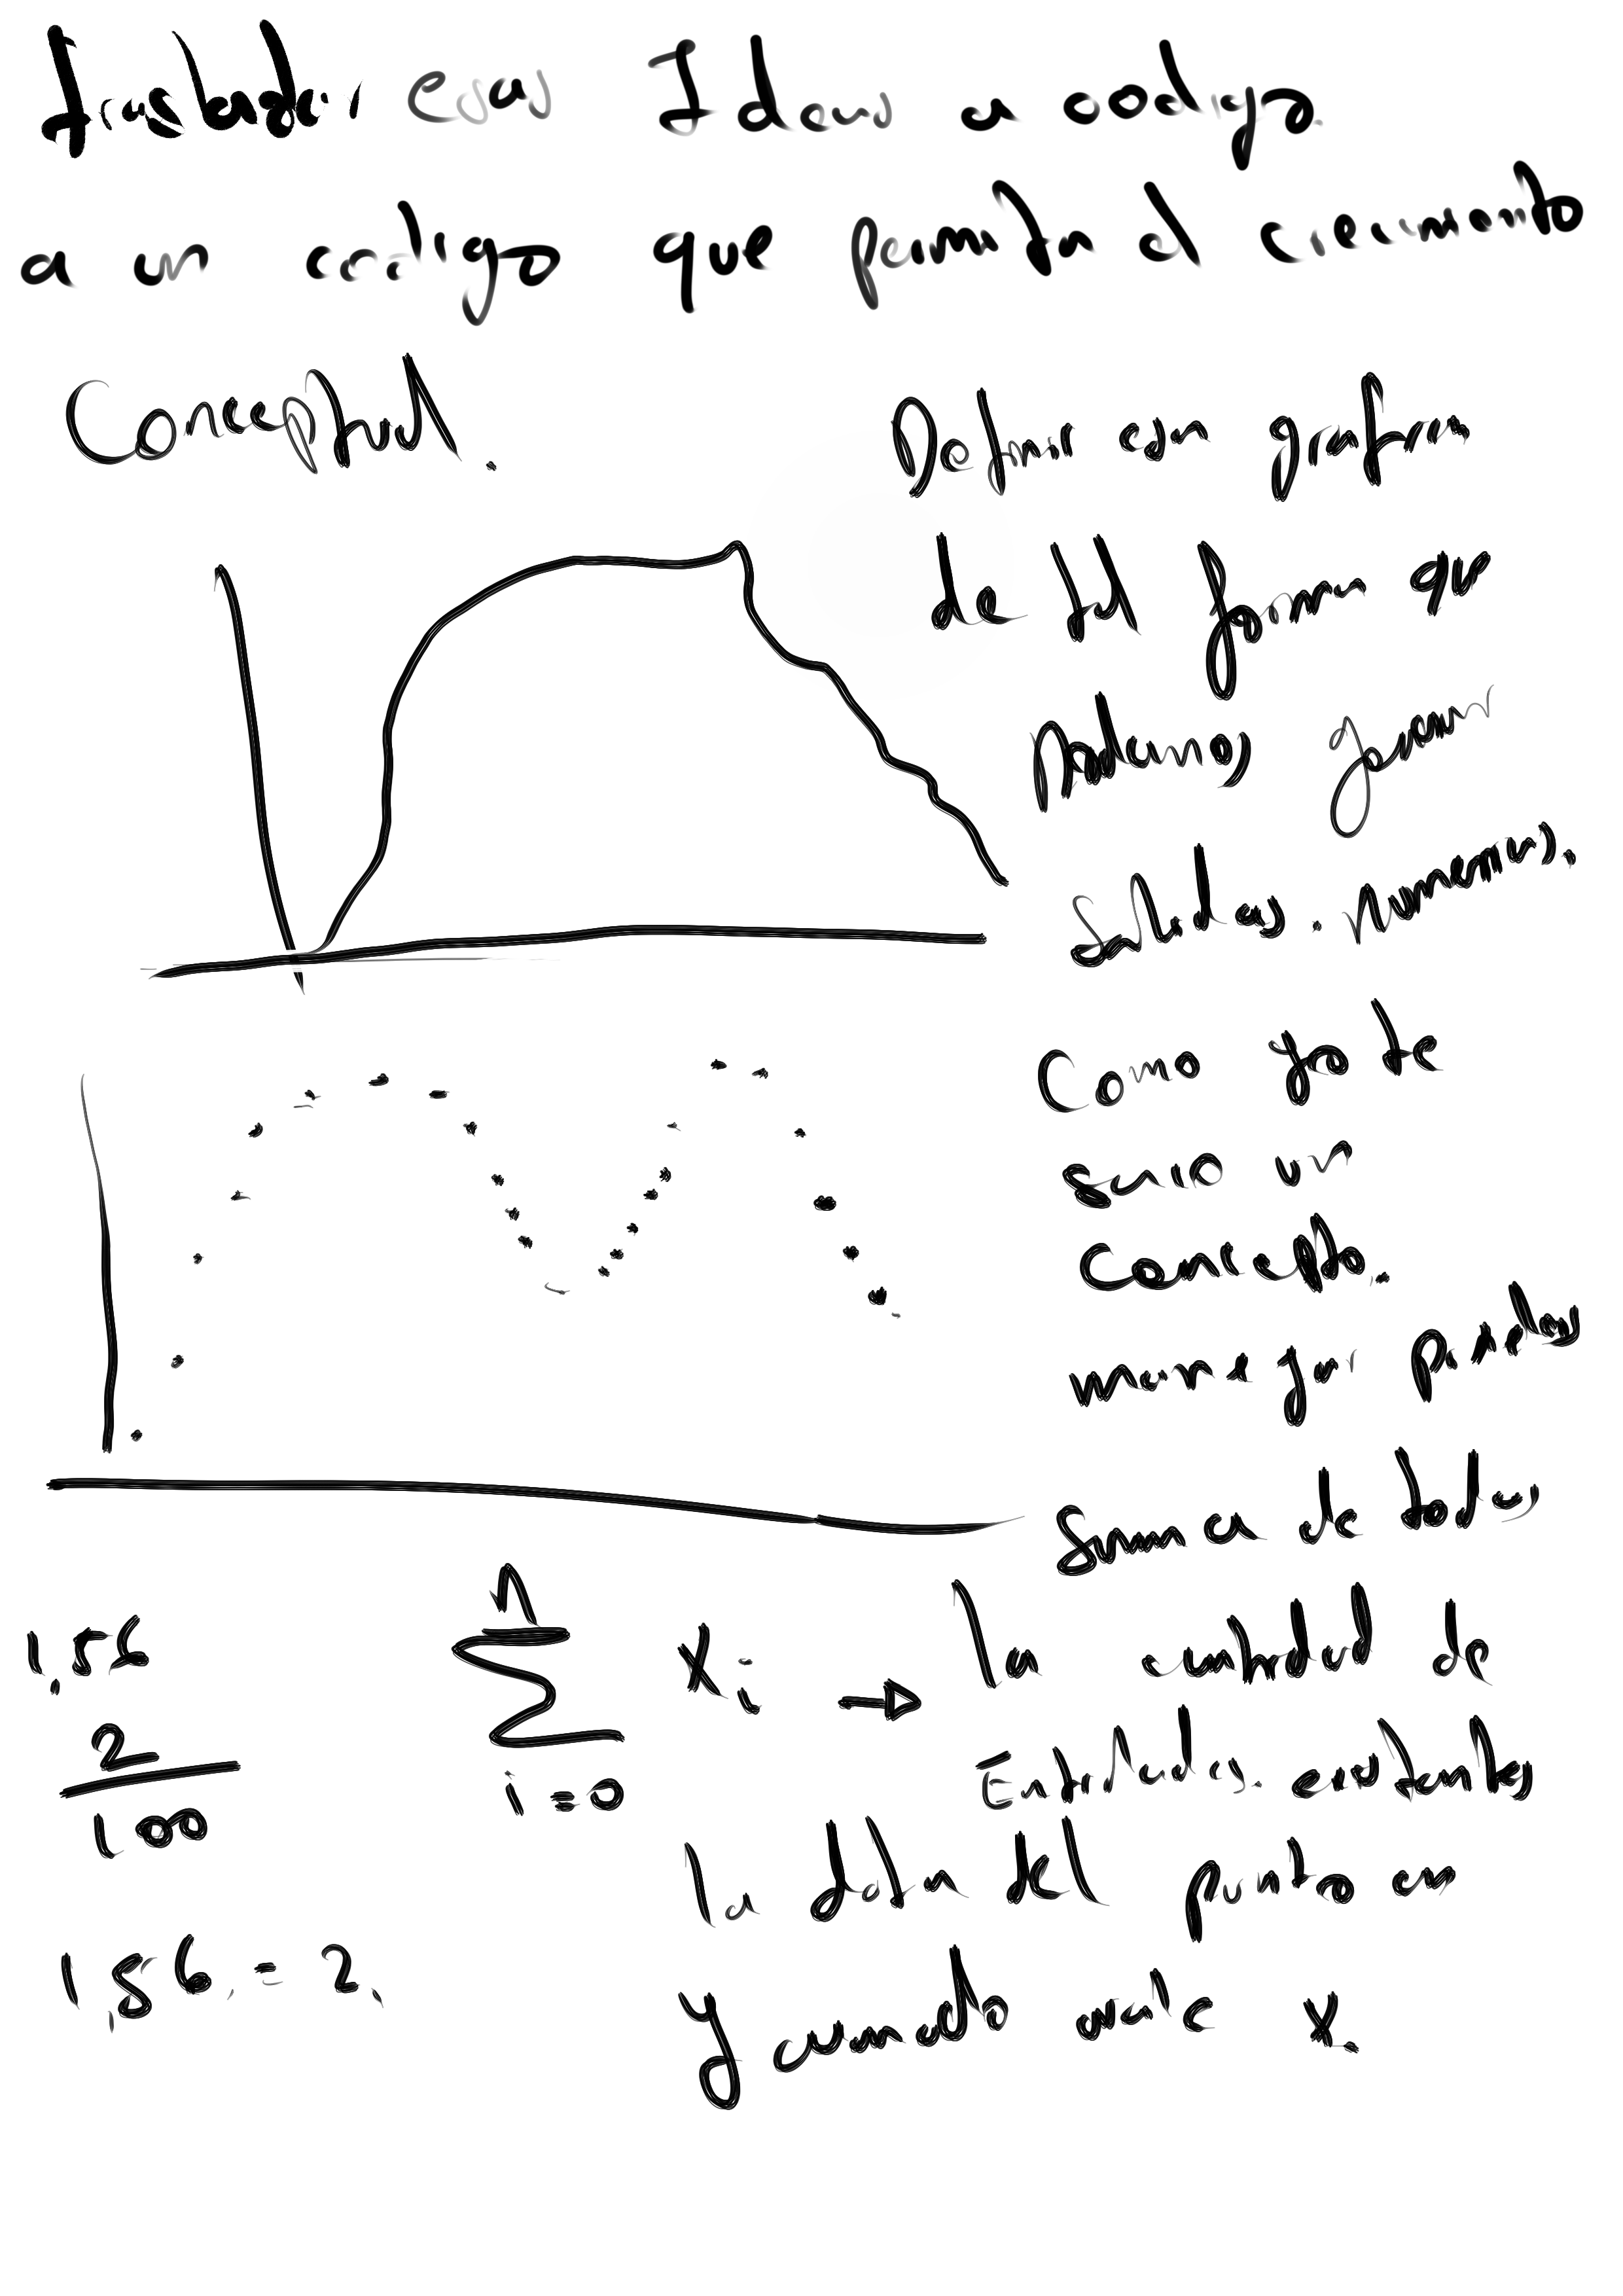 trasladar esas Ideas a codigo.
a un codigo que permita el crecimiento
Conceptual.
Definir esa grafica
de tal forma que
Podamos generar
Salidas. numericas.
Como yo te
serio un
concepto.
manejar pixeles
Suma de todas
1,56
n
∑ xi →
i=0
la cantidad de
2
100
Entidades. existentes
la data del punto en
1,56. = 2.
y cuando vale x.